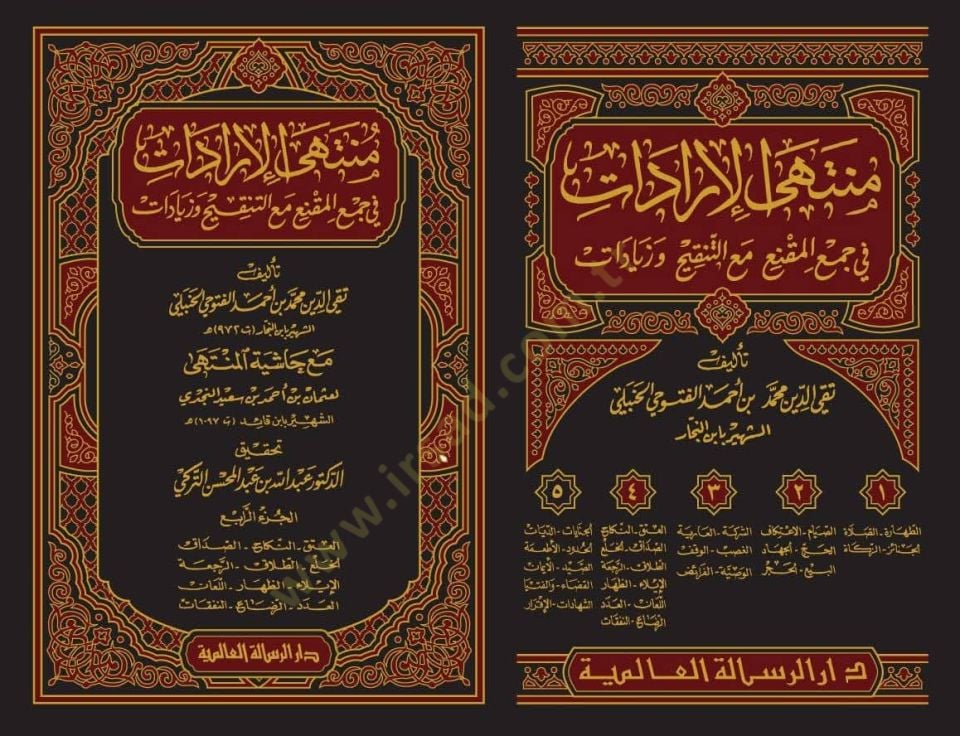 منتهى الإرادات
في جمع المقنع مع التنقيح وزيادات
تأليف
تقي الدين محمد بن أحمد الفتوحي الحنبلي
الشهير بابن النجار
١ ٢ ٣ ٤ ٥
الطهارة - الصلاة
الجنائز - الزكاة
الصيام - الاعتكاف
الحج - الجهاد
البيع - الحجر
الشركة - العارية
الغصب - الوقف
الوصية - الفرائض
العتق - النكاح
الصداق - الخلع
الطلاق - الرجعة
الإيلاء - الظهار
اللعان - العدد
الرضاع - النفقات
الجنايات - الديات
الحدود - الأطعمة
الصيد - الأيمان
القضاء - والفتيا
الشهادات - الإقرار
دار الرسالة العالمية
مُنتهى الإرادات
في جمع المقنع مع التنقيح وزيادات
تأليف
تقي الدين محمد بن أحمد الفتوحي الحنبلي
الشهير بابن النجار (ت ٩٧٢) هـ
مع حاشية المنتهى
لعثمان بن أحمد بن سعيد النجدي
الشهير بابن قائد (ت ١٠٩٧) هـ
تحقيق
الدكتور عبد الله بن عبد المحسن التركي
الجزء الرابع
العتق - النكاح - الصداق
الخلع - الطلاق - الرجعة
الإيلاء - الظهار - اللعان
العدد - الرضاع - النفقات
دار الرسالة العالمية